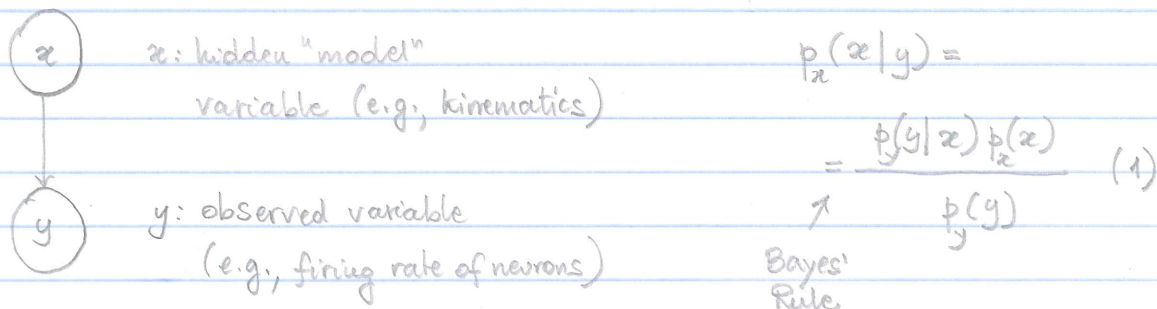 x
x: hidden "model"
variable (e.g., kinematics)
y
y: observed variable
(e.g., firing rate of neurons)
p_x(x|y) =
= p_y(y|x) p_x(x) / p_y(y) (1)
↗
Bayes'
Rule